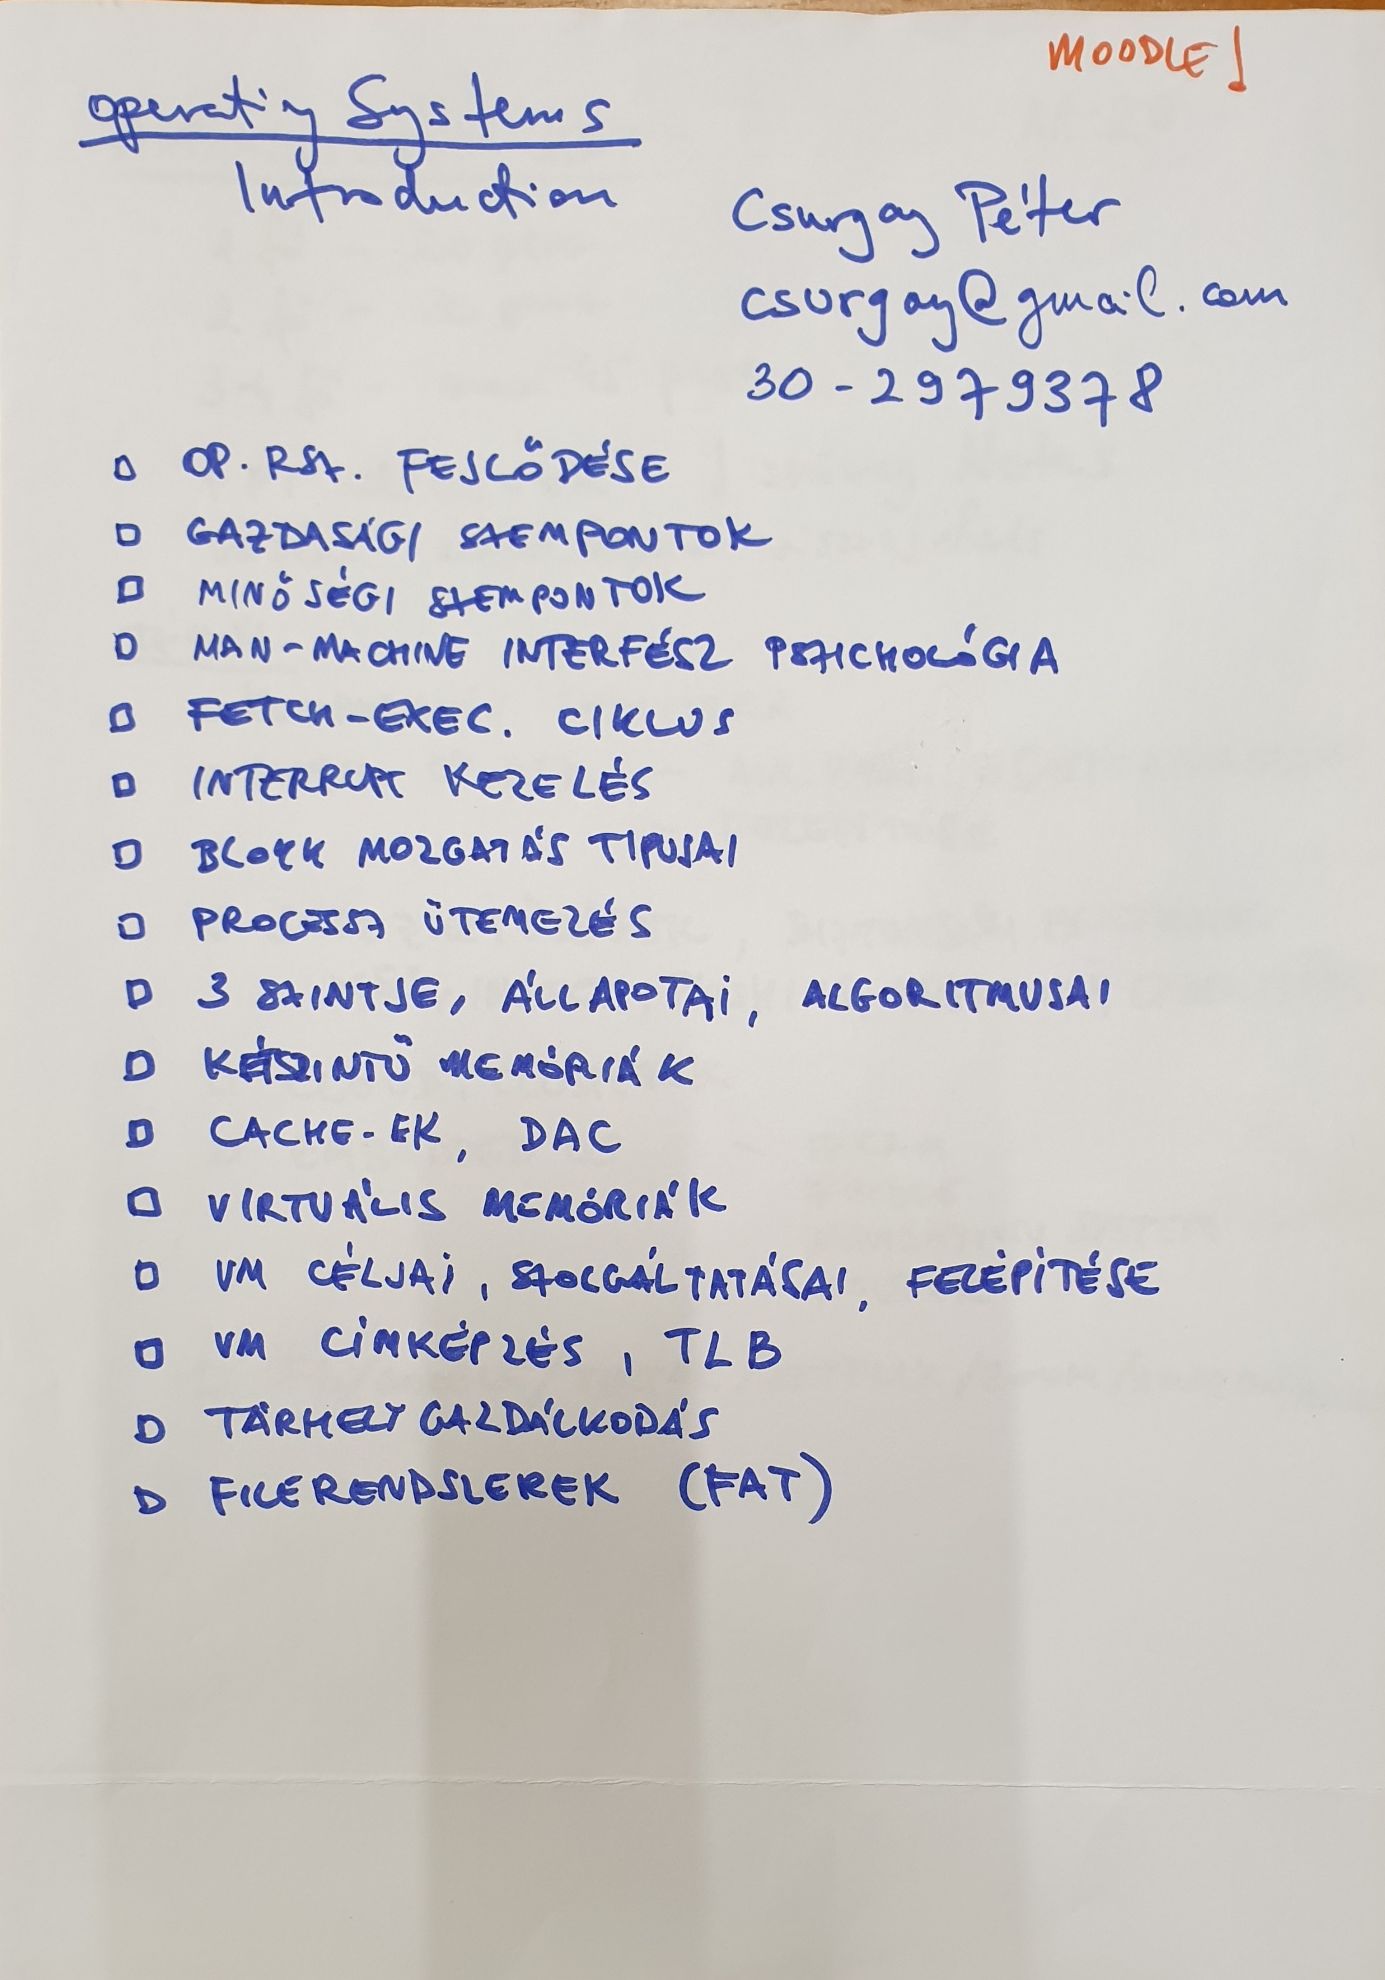 MOODLE!
Operating Systems
Introduction
Csurgay Péter
csurgay@gmail.com
30-2979378
□ OP. RSZ. FEJLŐDÉSE
□ GAZDASÁGI SZEMPONTOK
□ MINŐSÉGI SZEMPONTOK
□ MAN-MACHINE INTERFÉSZ PSZICHOLÓGIA
□ FETCH-EXEC. CIKLUS
□ INTERRUPT KEZELÉS
□ BLOKK MOZGATÁS TIPUSAI
□ PROCESSZ ÜTEMEZÉS
□ 3 SZINTJE, ÁLLAPOTAI, ALGORITMUSAI
□ MEMÓRIÁK
□ CACHE-EK, DAC
□ VIRTUÁLIS MEMÓRIÁK
□ VM CÉLJAI, SZOLGÁLTATÁSAI, FELÉPÍTÉSE
□ VM CÍMKÉPZÉS, TLB
□ TÁRHELY GAZDÁLKODÁS
□ FILERENDSZEREK (FAT)